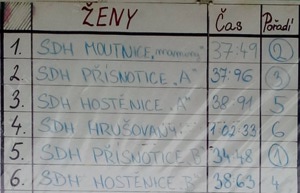 ŽENY Čas Pořadí
1. SDH MOUTNICE „maminy" 37:49 2
2. SDH PŘÍSNOTICE „A" 37:96 3
3. SDH HOSTĚNICE „A" 38.91 5
4. SDH HRUŠOVANY 1:02:33 6
5. SDH PŘÍSNOTICE „B" 34:48 1
6. SDH HOSTĚNICE „B" 38:63 4